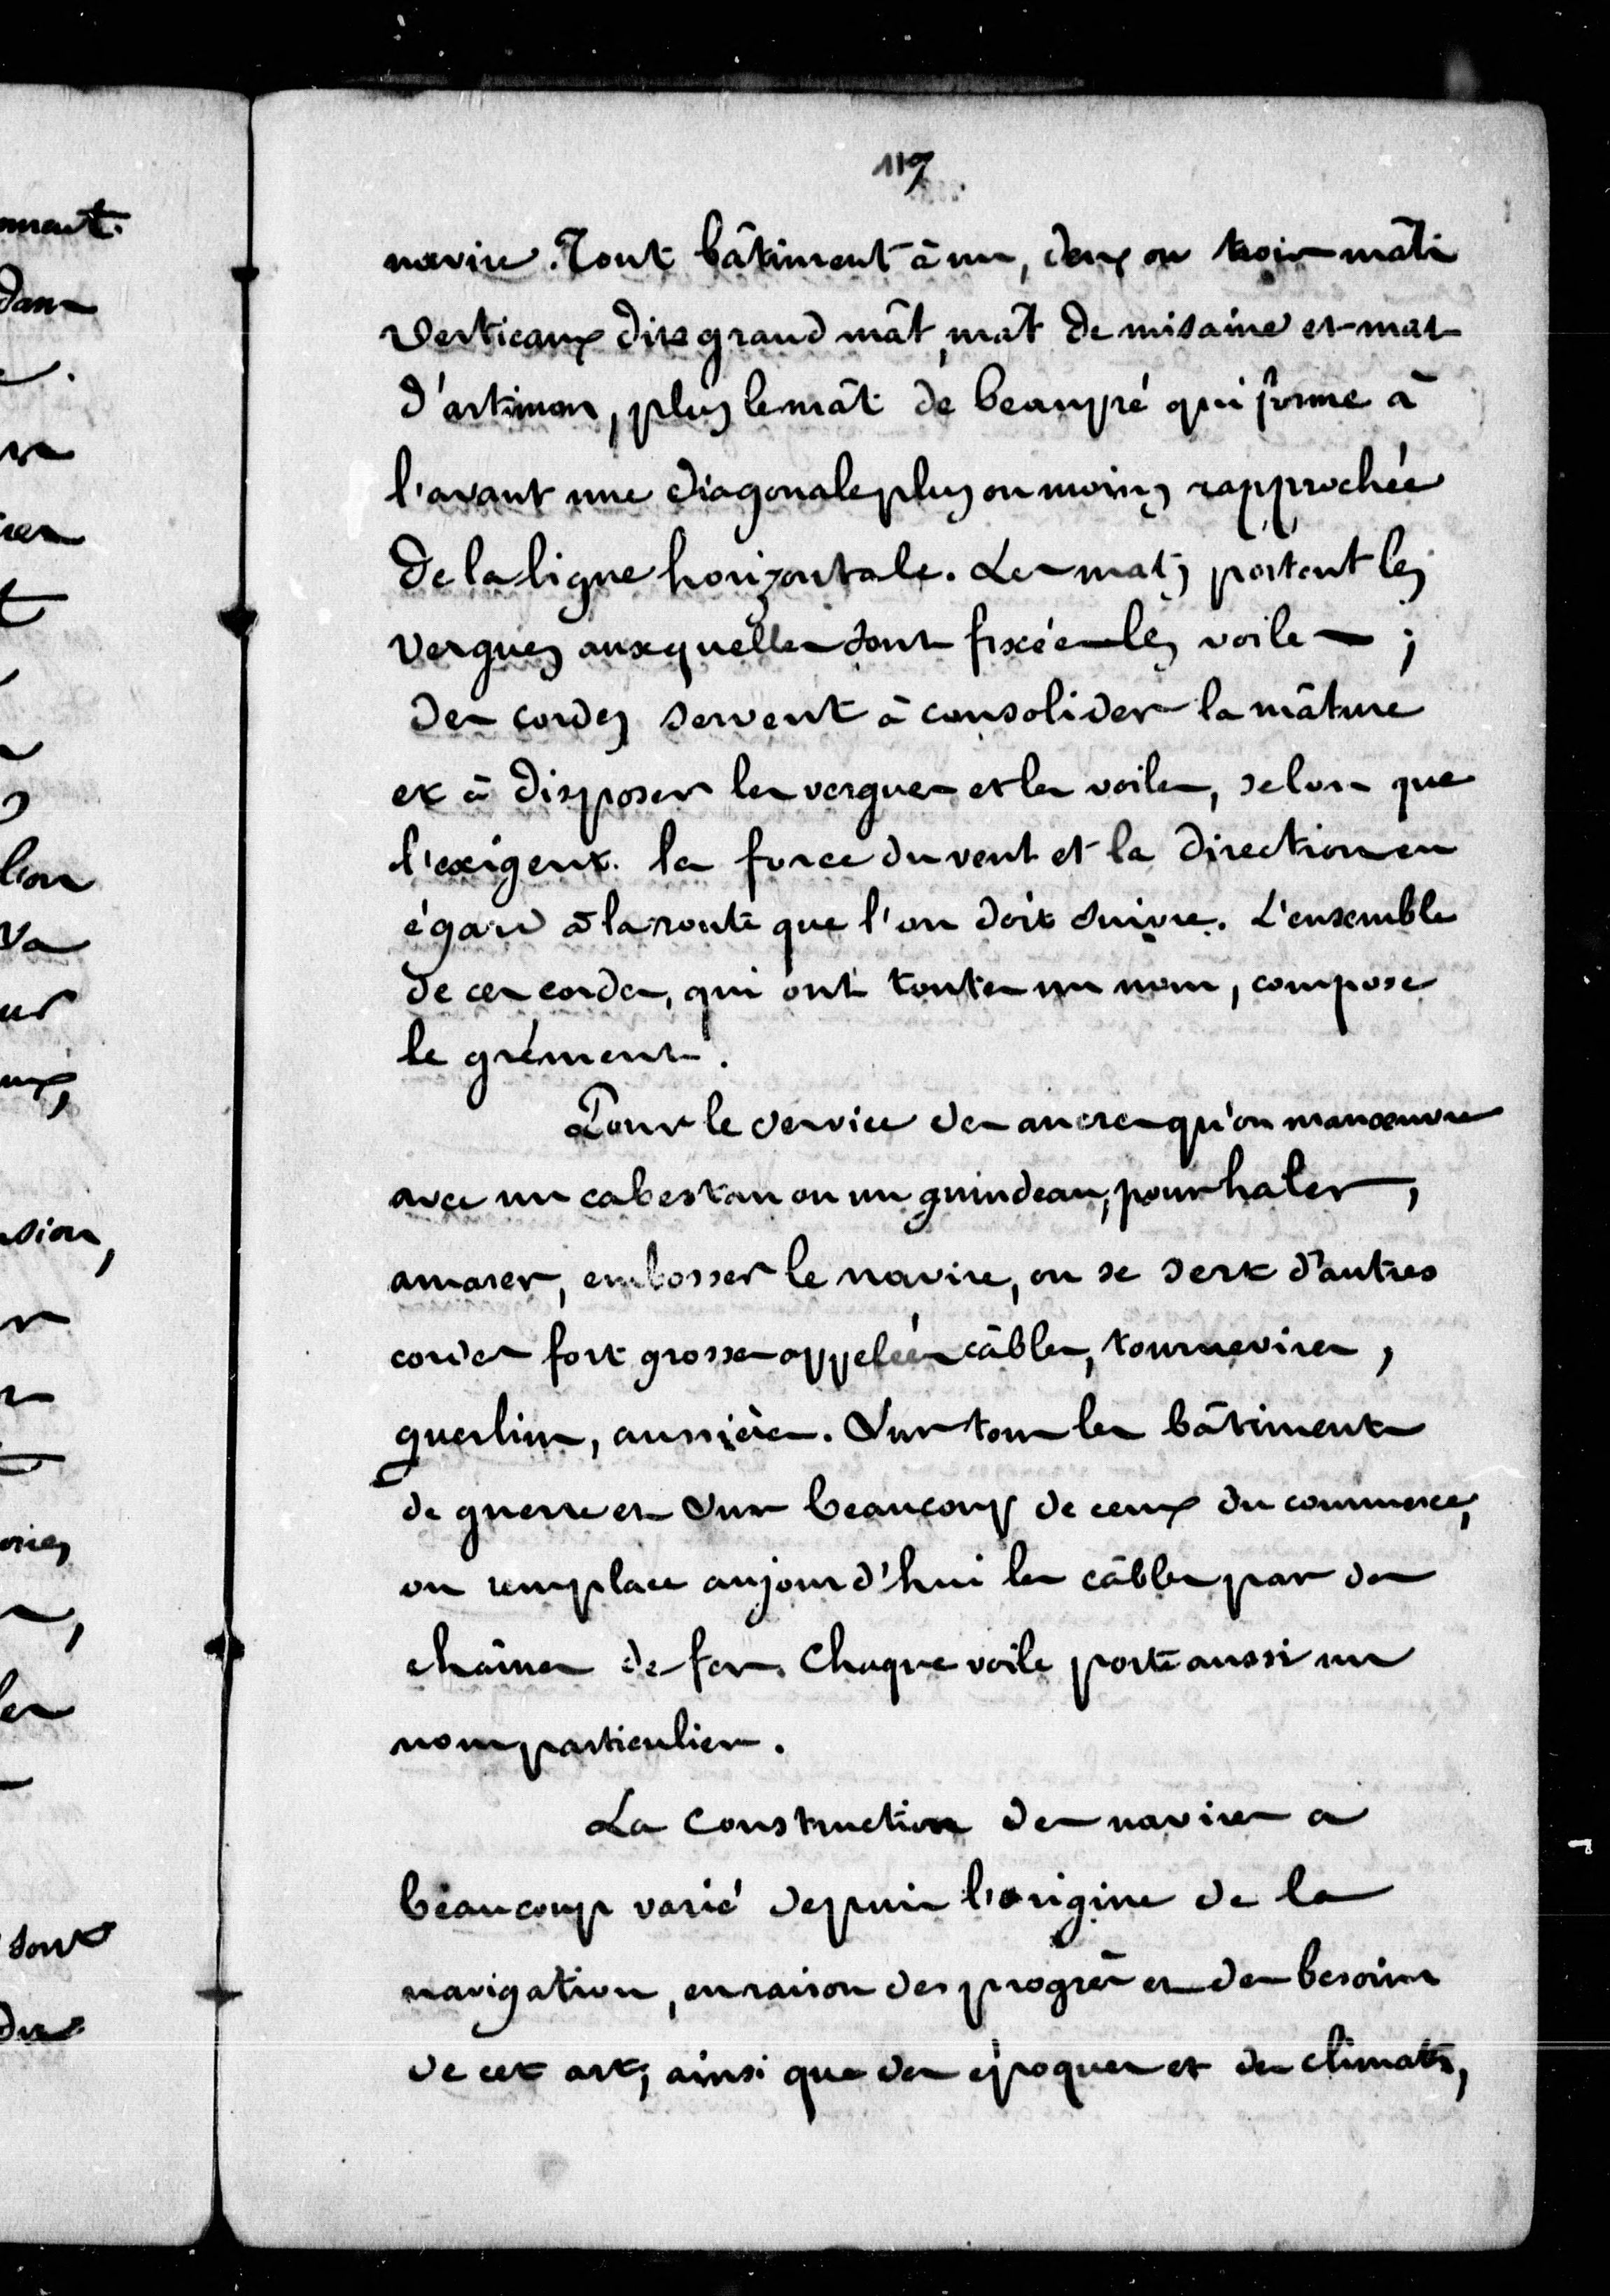 119
navire. Tout bâtiment à un, deux ou trois mâts
verticaux dits grand mât, mât de misaine et mat
d'artimon, plus le mât de beaupré qui forme à
l'avant une diagonale plus ou moins rapprochée
de la ligne horizontale. Les mats portent les
vergues auxquelles sont fixées les voiles ;
des cordes servent à consolider la mâture
et à disposer les vergues et les voiles, selon que
l'exigent la force du vent et la direction eu
égard à la route que l'on doit suivre. L'ensemble
de ces cordes, qui ont toutes un nom, compose
le grément.
Pour le service des ancres qu'on manœuvre
avec un cabestan ou un guindeau, pour haler,
amarer, embosser le navire, on se sert d'autres
cordes fort grosses appelées câbles, tournevires,
guerlins, aussières. Sur tous les bâtiments
de guerre et sur beaucoup de ceux du commerce,
on remplace aujourd'hui les câbles par des
chaînes de fer. Chaque voile porte aussi un
nom particulier.
La construction des navires a
beaucoup varié depuis l'origine de la
navigation, en raison des progrès et des besoins
de cet art, ainsi que des époques et des climats,
ment.
dans
lon
va
sion,
les
sont